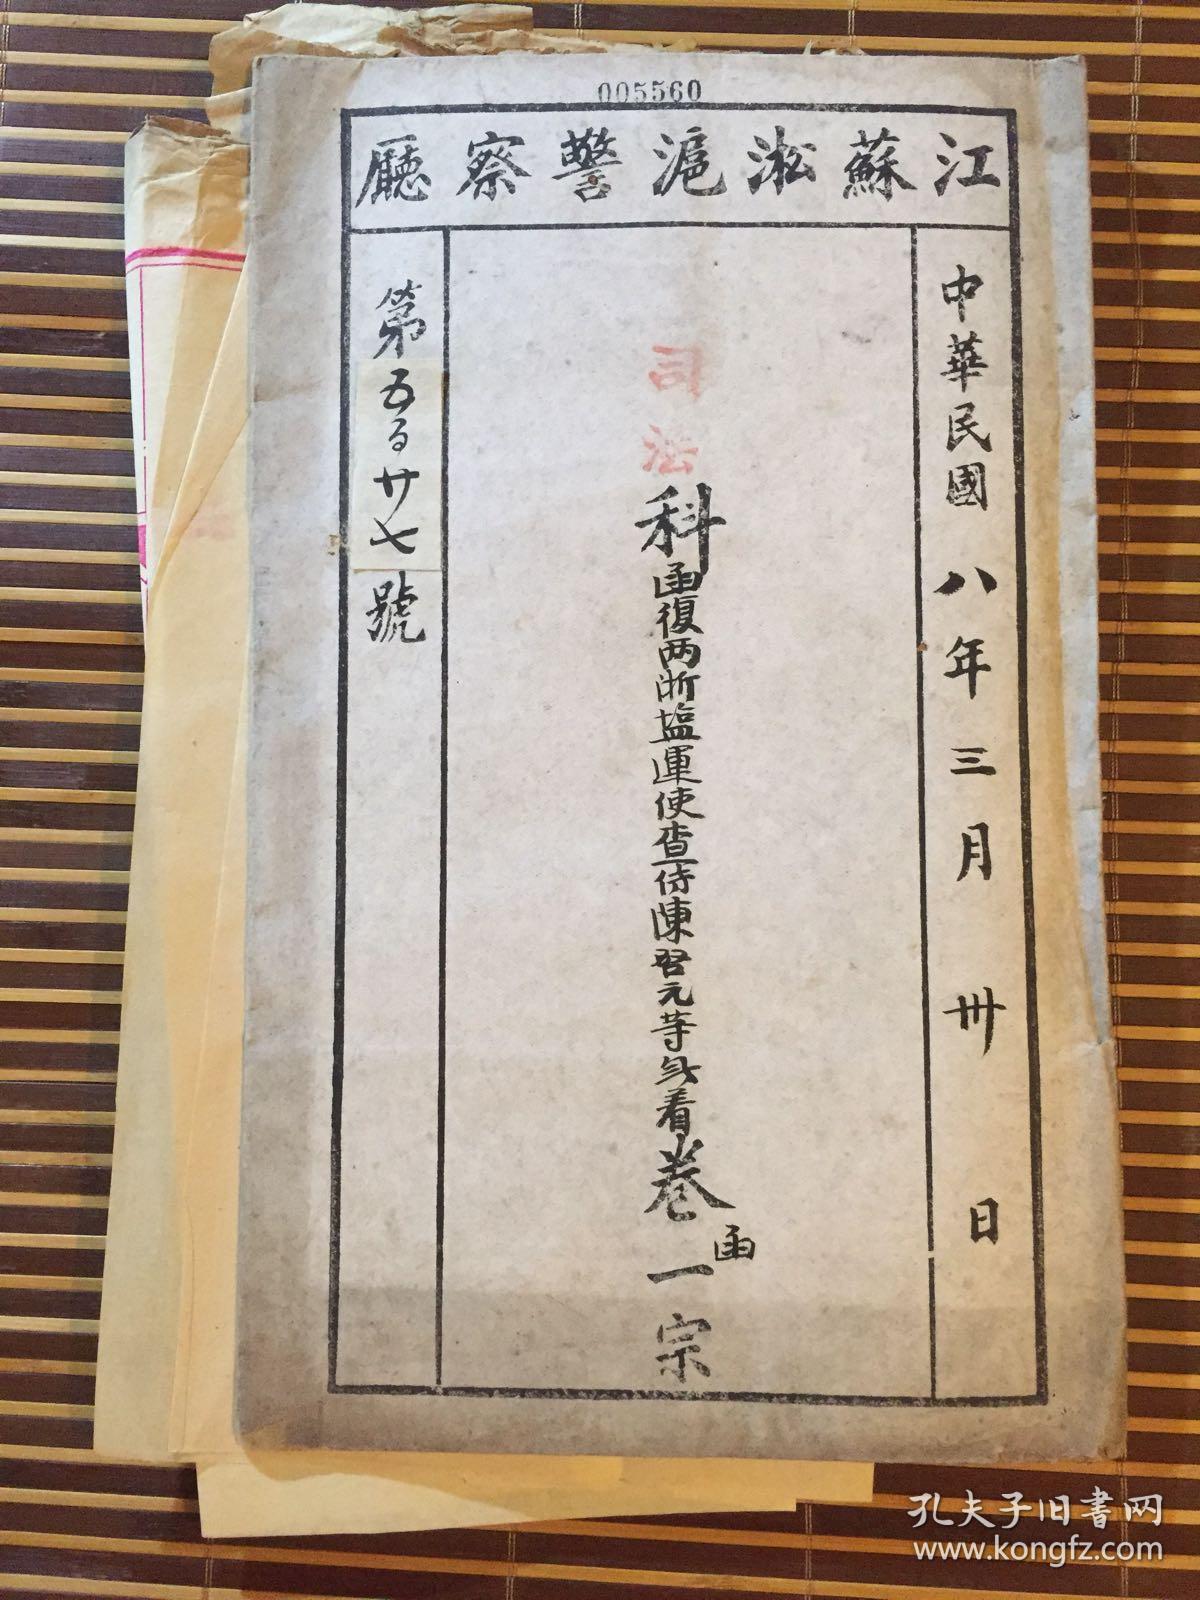 005560
江蘇淞滬警察廳
中華民國八年三月卅日
司法科函復兩浙塩運使查待陳啓元等無着卷一宗
函
第五百廿七號
孔夫子旧书网
www.kongfz.com